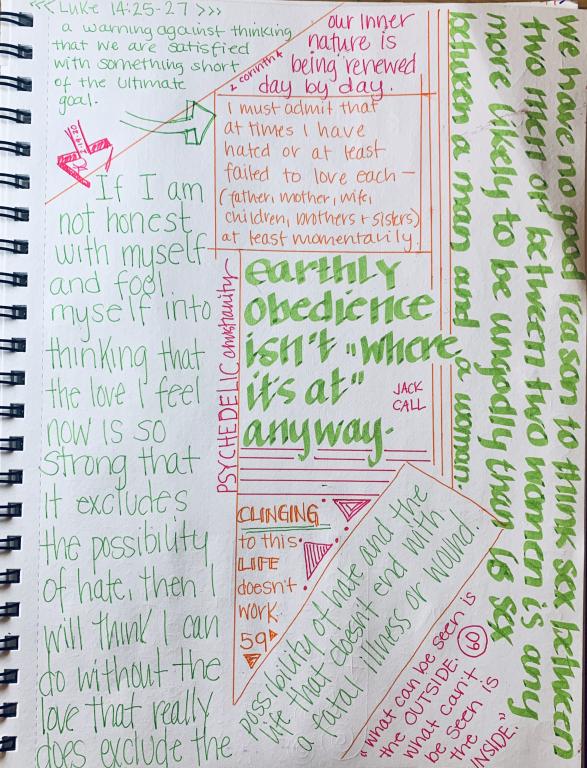 <<< Luke 14:25-27 >>>
a warning against thinking
that we are satisfied
with something short
of the ultimate
goal.
2 corinth 4
our inner
nature is
being renewed
day by day.
I must admit that
at times I have
hated or at least
failed to love each —
(father, mother, wife,
children, brothers + sisters)
at least momentarily.
If I am
not honest
with myself
and fool
myself into
thinking that
the love I feel
now is so
strong that
it excludes
the possibility
of hate, then I
will think I can
do without the
love that really
does exclude the
possibility of hate and the
life that doesn't end with
a fatal illness or wound.
PSYCHEDELIC christianity
earthly
obedience
isn't "where
it's at"
anyway.
JACK
CALL
CLINGING
to this
LIFE
doesn't
work.
59
"what can be seen is
the OUTSIDE. 60
what can't
be seen is
the
INSIDE."
we have no good reason to think sex between
two men or between two women is any
more likely to be ungodly than is sex
between a man and a woman